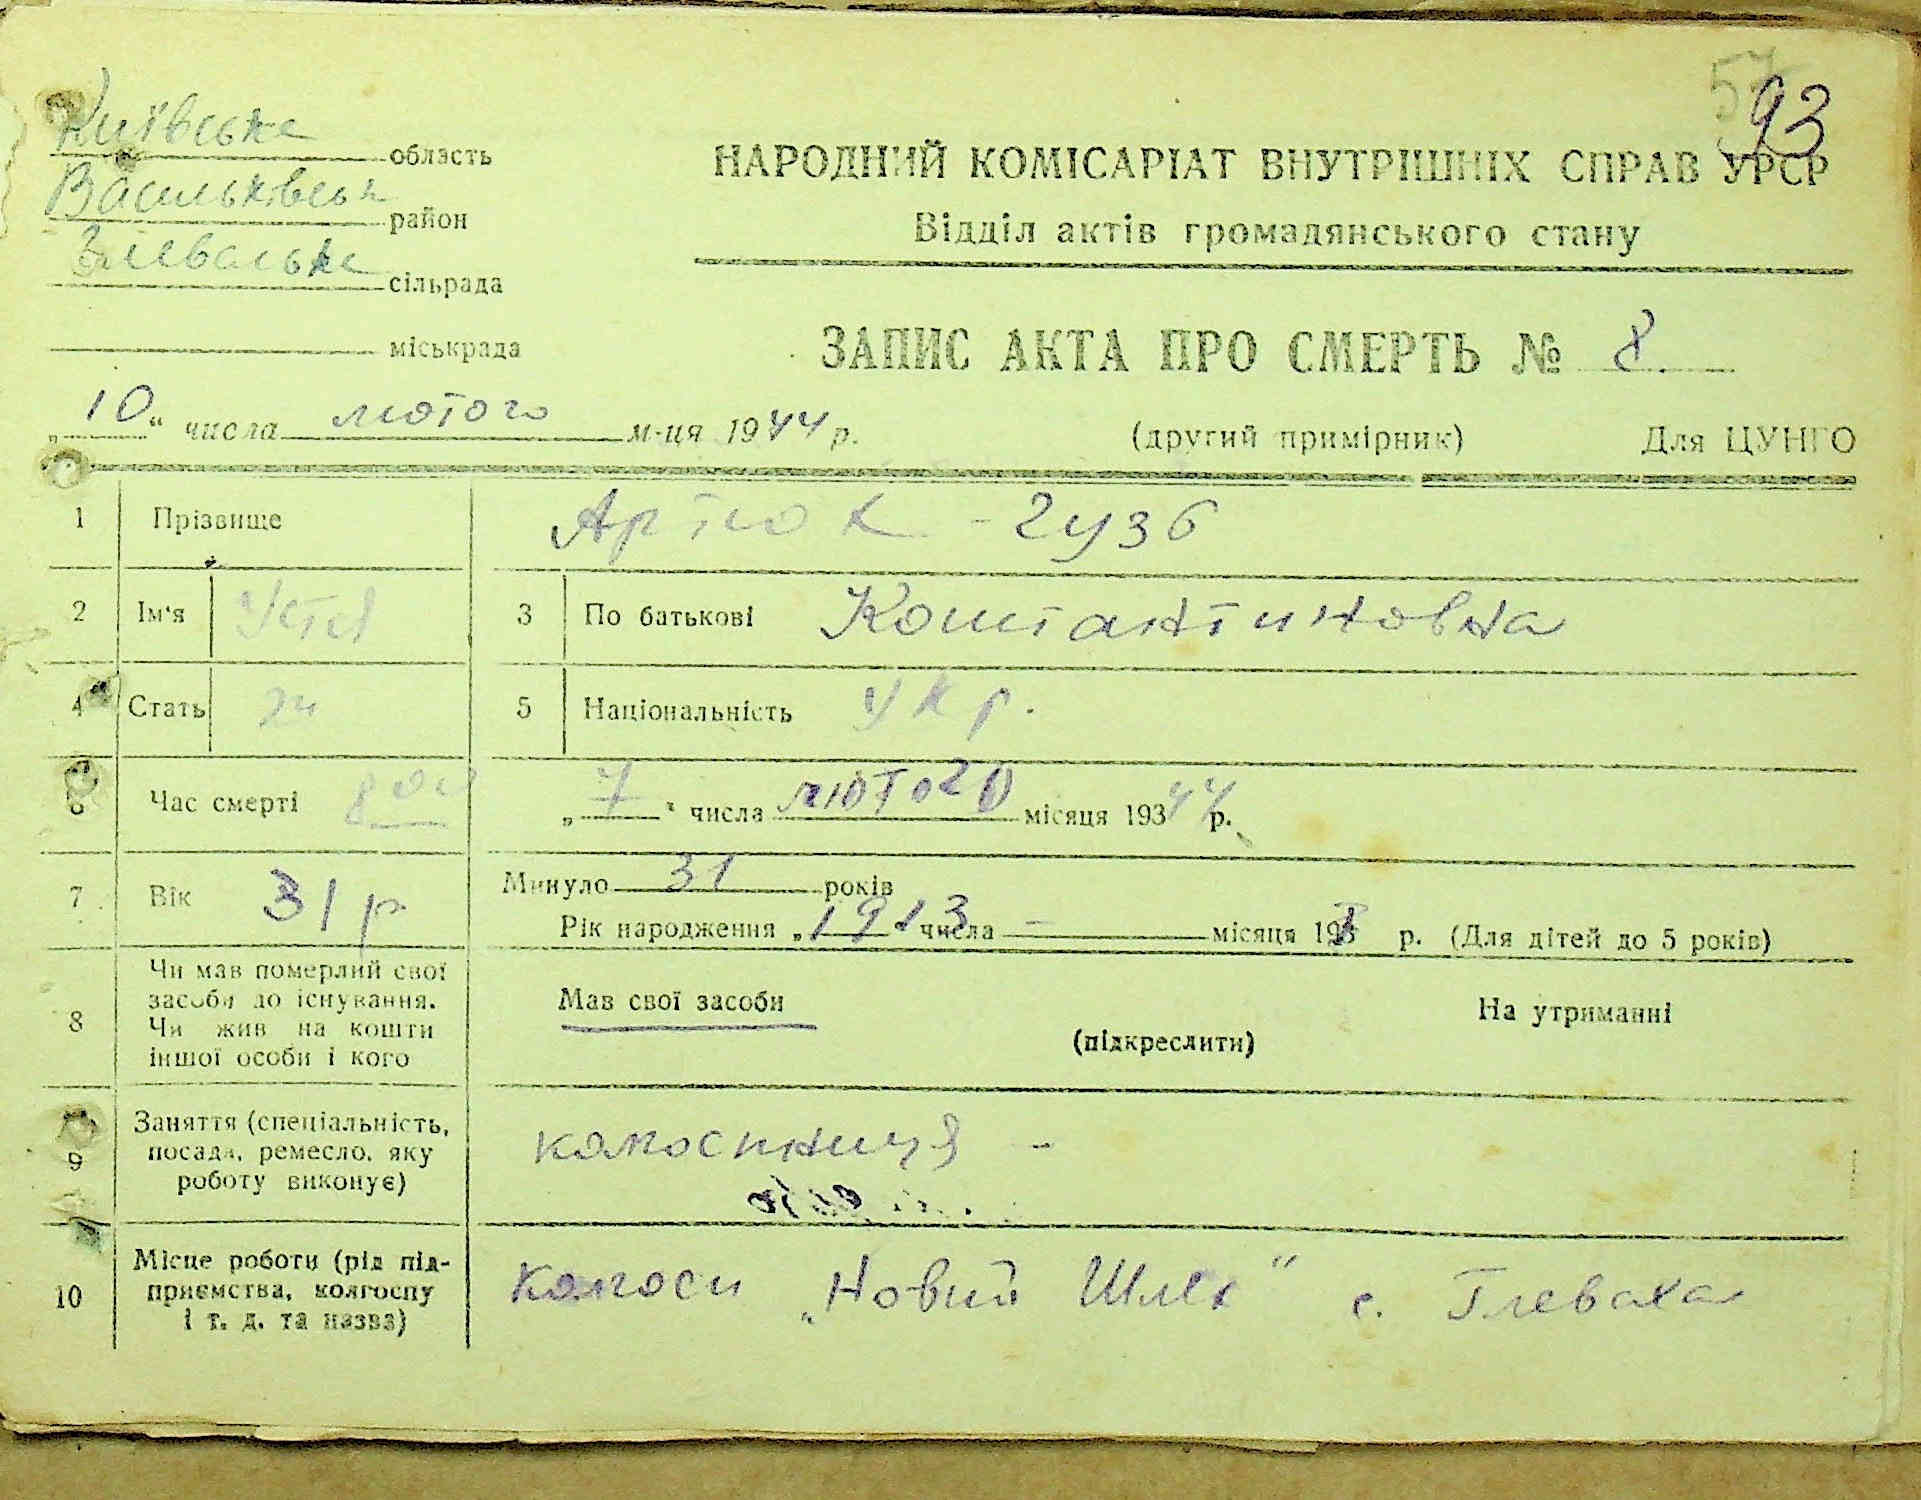 57
93
Київське область
Васильківськ район
сільрада
міськрада
НАРОДНИЙ КОМІСАРІАТ ВНУТРІШНІХ СПРАВ УРСР
Відділ актів громадянського стану
ЗАПИС АКТА ПРО СМЕРТЬ № 8
„10“ числа лютого м-ця 1944 р.
(другий примірник) Для ЦУНГО
1 Прізвище Артюх - гузб
2 Ім'я Устя 3 По батькові Констянтиновна
4 Стать ж 5 Національність Укр.
6 Час смерті „7“ числа лютого місяця 19344р.
7 Вік 31 р Минуло 31 років
Рік народження „1913 числа — місяця 193 р. (Для дітей до 5 років)
8 Чи мав померлий свої
засоби до існування.
Чи жив на кошти
іншої особи і кого
Мав свої засоби На утриманні
(підкреслити)
9 Заняття (спеціальність,
посада, ремесло, яку
роботу виконує)
колоспниця -
10 Місце роботи (рід під-
приємства, колгоспу
і т. д. та назва)
колгосп „Новий Шлях" с. Глеваха